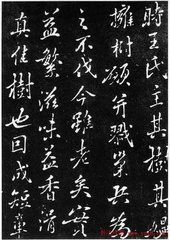 時王氏主其樹其
擁樹願并戮業兵
之不伐今雖老矣實
益繁滋味益香滑
真佳樹也因成短章